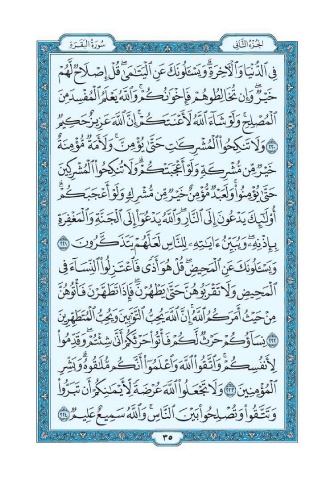 الجزء الثاني
سورة البقرة
فِي ٱلدُّنْيَا وَٱلْأٓخِرَةِۗ وَيَسْـَٔلُونَكَ عَنِ ٱلْيَتَـٰمَىٰۖ قُلْ إِصْلَاحٌ لَّهُمْ
خَيْرٌۖ وَإِن تُخَالِطُوهُمْ فَإِخْوَٰنُكُمْۚ وَٱللَّهُ يَعْلَمُ ٱلْمُفْسِدَ مِنَ
ٱلْمُصْلِحِۚ وَلَوْ شَآءَ ٱللَّهُ لَأَعْنَتَكُمْۚ إِنَّ ٱللَّهَ عَزِيزٌ حَكِيمٌ
٢٢٠ وَلَا تَنكِحُوا۟ ٱلْمُشْرِكَـٰتِ حَتَّىٰ يُؤْمِنَّۚ وَلَأَمَةٌ مُّؤْمِنَةٌ
خَيْرٌ مِّن مُّشْرِكَةٍ وَلَوْ أَعْجَبَتْكُمْۗ وَلَا تُنكِحُوا۟ ٱلْمُشْرِكِينَ
حَتَّىٰ يُؤْمِنُوا۟ۚ وَلَعَبْدٌ مُّؤْمِنٌ خَيْرٌ مِّن مُّشْرِكٍ وَلَوْ أَعْجَبَكُمْۗ
أُو۟لَـٰٓئِكَ يَدْعُونَ إِلَى ٱلنَّارِۖ وَٱللَّهُ يَدْعُوٓا۟ إِلَى ٱلْجَنَّةِ وَٱلْمَغْفِرَةِ
بِإِذْنِهِۦۖ وَيُبَيِّنُ ءَايَـٰتِهِۦ لِلنَّاسِ لَعَلَّهُمْ يَتَذَكَّرُونَ ٢٢١
وَيَسْـَٔلُونَكَ عَنِ ٱلْمَحِيضِۖ قُلْ هُوَ أَذًى فَٱعْتَزِلُوا۟ ٱلنِّسَآءَ فِي
ٱلْمَحِيضِۖ وَلَا تَقْرَبُوهُنَّ حَتَّىٰ يَطْهُرْنَۖ فَإِذَا تَطَهَّرْنَ فَأْتُوهُنَّ
مِنْ حَيْثُ أَمَرَكُمُ ٱللَّهُۚ إِنَّ ٱللَّهَ يُحِبُّ ٱلتَّوَّٰبِينَ وَيُحِبُّ ٱلْمُتَطَهِّرِينَ
٢٢٢ نِسَآؤُكُمْ حَرْثٌ لَّكُمْ فَأْتُوا۟ حَرْثَكُمْ أَنَّىٰ شِئْتُمْۖ وَقَدِّمُوا۟
لِأَنفُسِكُمْۚ وَٱتَّقُوا۟ ٱللَّهَ وَٱعْلَمُوٓا۟ أَنَّكُم مُّلَـٰقُوهُۗ وَبَشِّرِ
ٱلْمُؤْمِنِينَ ٢٢٣ وَلَا تَجْعَلُوا۟ ٱللَّهَ عُرْضَةً لِّأَيْمَـٰنِكُمْ أَن تَبَرُّوا۟
وَتَتَّقُوا۟ وَتُصْلِحُوا۟ بَيْنَ ٱلنَّاسِۗ وَٱللَّهُ سَمِيعٌ عَلِيمٌ ٢٢٤
٣٥